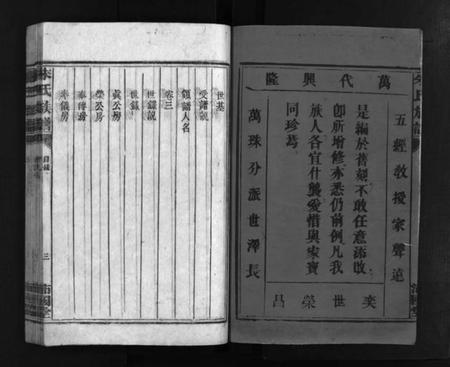 萬代興隆
五經教授家聲遠
是編於舊刻不敢任意添改
卽所增修亦悉仍前例凡我
族人各宜什襲愛惜與家寶
同珍焉
萬珠分派世澤長
奕世榮昌
世基
受譜說
領譜人名
卷三
世錄說
世錄
眞公房
榮公房
奉傳房
秀儀房
宋氏族譜
目錄
三